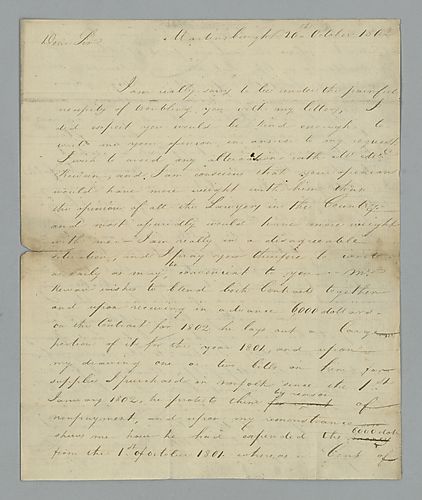 Dear Sir Martinsburgh 20th October 1802
I am really sorry to be under the painful
necessity of troubling you with my letters, I
did expect you would be kind enough to
write me your opinion, in answer to my request
I wish to avoid any altercations with
Kewan, and I am conscious that your opinion
would have more weight with him than
the opinion of all the Lawyers in the Country
and most assuredly would have more weight
with me — I am really in a disagreeable
situation, and I pray you therefore to write
as early as may be convenient to you — Mr
Kewan wishes to blend both Contracts together
and upon receiving in advance 6000 dollars
on the Contract for 1802 he lays out a large
portion of it for the year 1801, and upon
my drawing one or two bills on him for
supplies I purchased in norfolk since the 1st
January 1802, he protests them by reason of
nonpayment, and upon my remonstrance
shews me how he had expended the 6000 dolls
from the 1st of October 1801 whereas Cont of